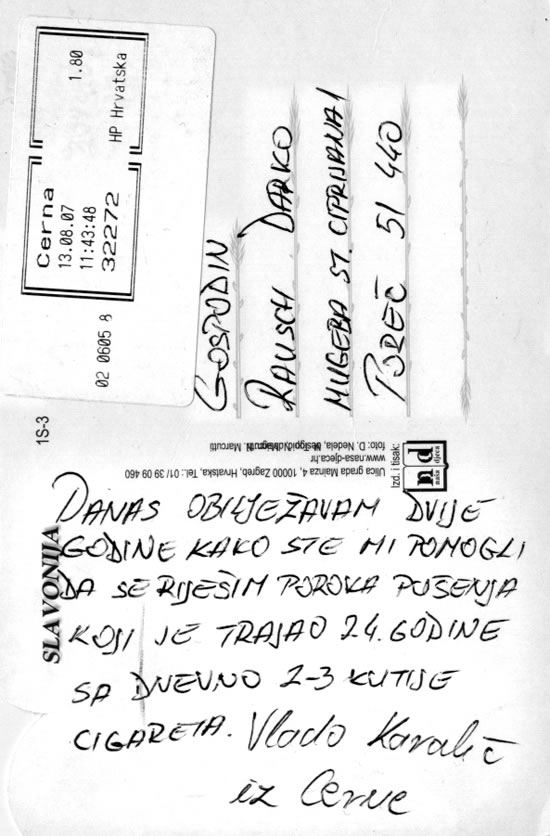 Cerna
13.08.07
11:43:48
32272
1.80
HP Hrvatska
02 0605 8
GOSPODIN
RAUSCH DARKO
MUGEBA ST. CIPRIJANA 1
POREČ 51 440
1S-3
Izd. i tisak:
nd
naša djeca
Ulica grada Mainza 4, 10000 Zagreb, Hrvatska, Tel.: 01/ 39 09 460
www.nasa-djeca.hr
foto: D. Nedela, Marcutti
SLAVONIJA
DANAS OBILJEŽAVAM DVIJE
GODINE KAKO STE MI POMOGLI
DA SE RIJEŠIM POROKA PUŠENJA
KOJI JE TRAJAO 24. GODINE
SA DNEVNO 2-3 KUTIJE
CIGARETA. Vlado Karalić
iz Cerne